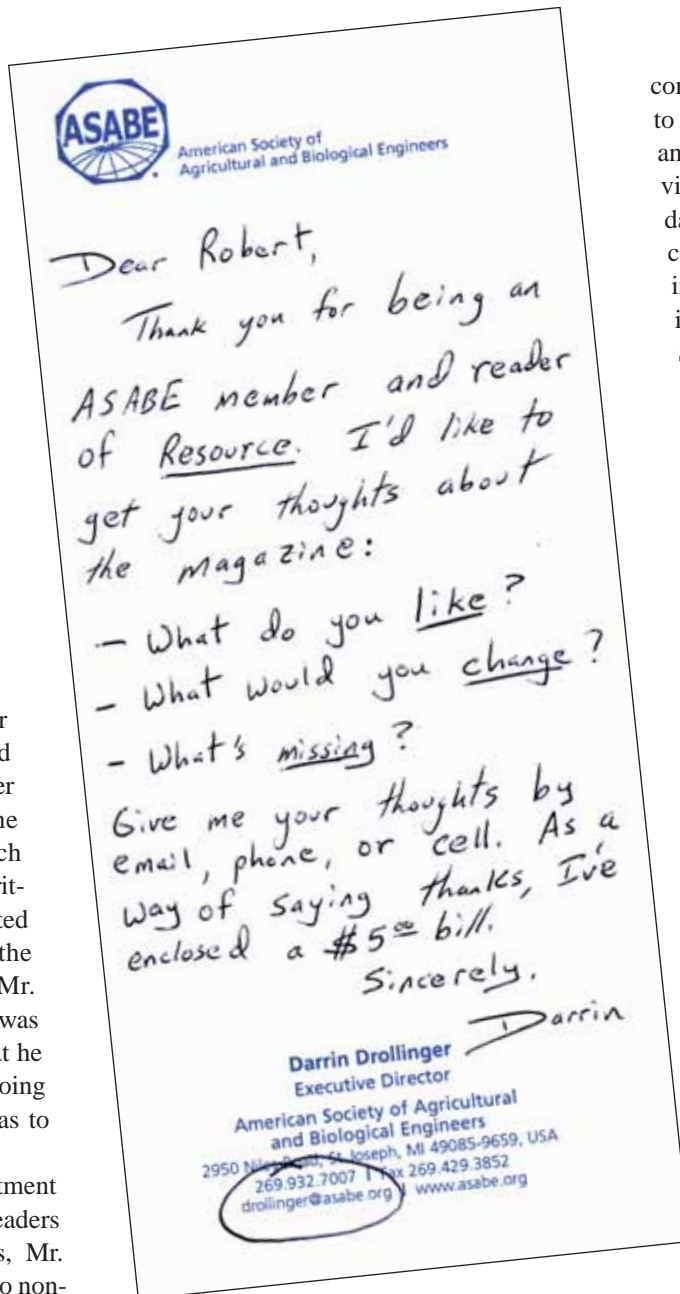 ASABE
American Society of
Agricultural and Biological Engineers
Dear Robert,
Thank you for being an
ASABE member and reader
of Resource. I'd like to
get your thoughts about
the magazine:
- What do you like?
- What would you change?
- What's missing?
Give me your thoughts by
email, phone, or cell. As a
way of saying thanks, I've
enclosed a $5.00 bill.
Sincerely,
Darrin
Darrin Drollinger
Executive Director
American Society of Agricultural
and Biological Engineers
2950 Niles Road, St. Joseph, MI 49085-9659, USA
269.932.7007 | Fax 269.429.3852
drollinger@asabe.org | www.asabe.org
the
Mr.
was
at he
oing
as to
eaders
Mr.
o non-
to